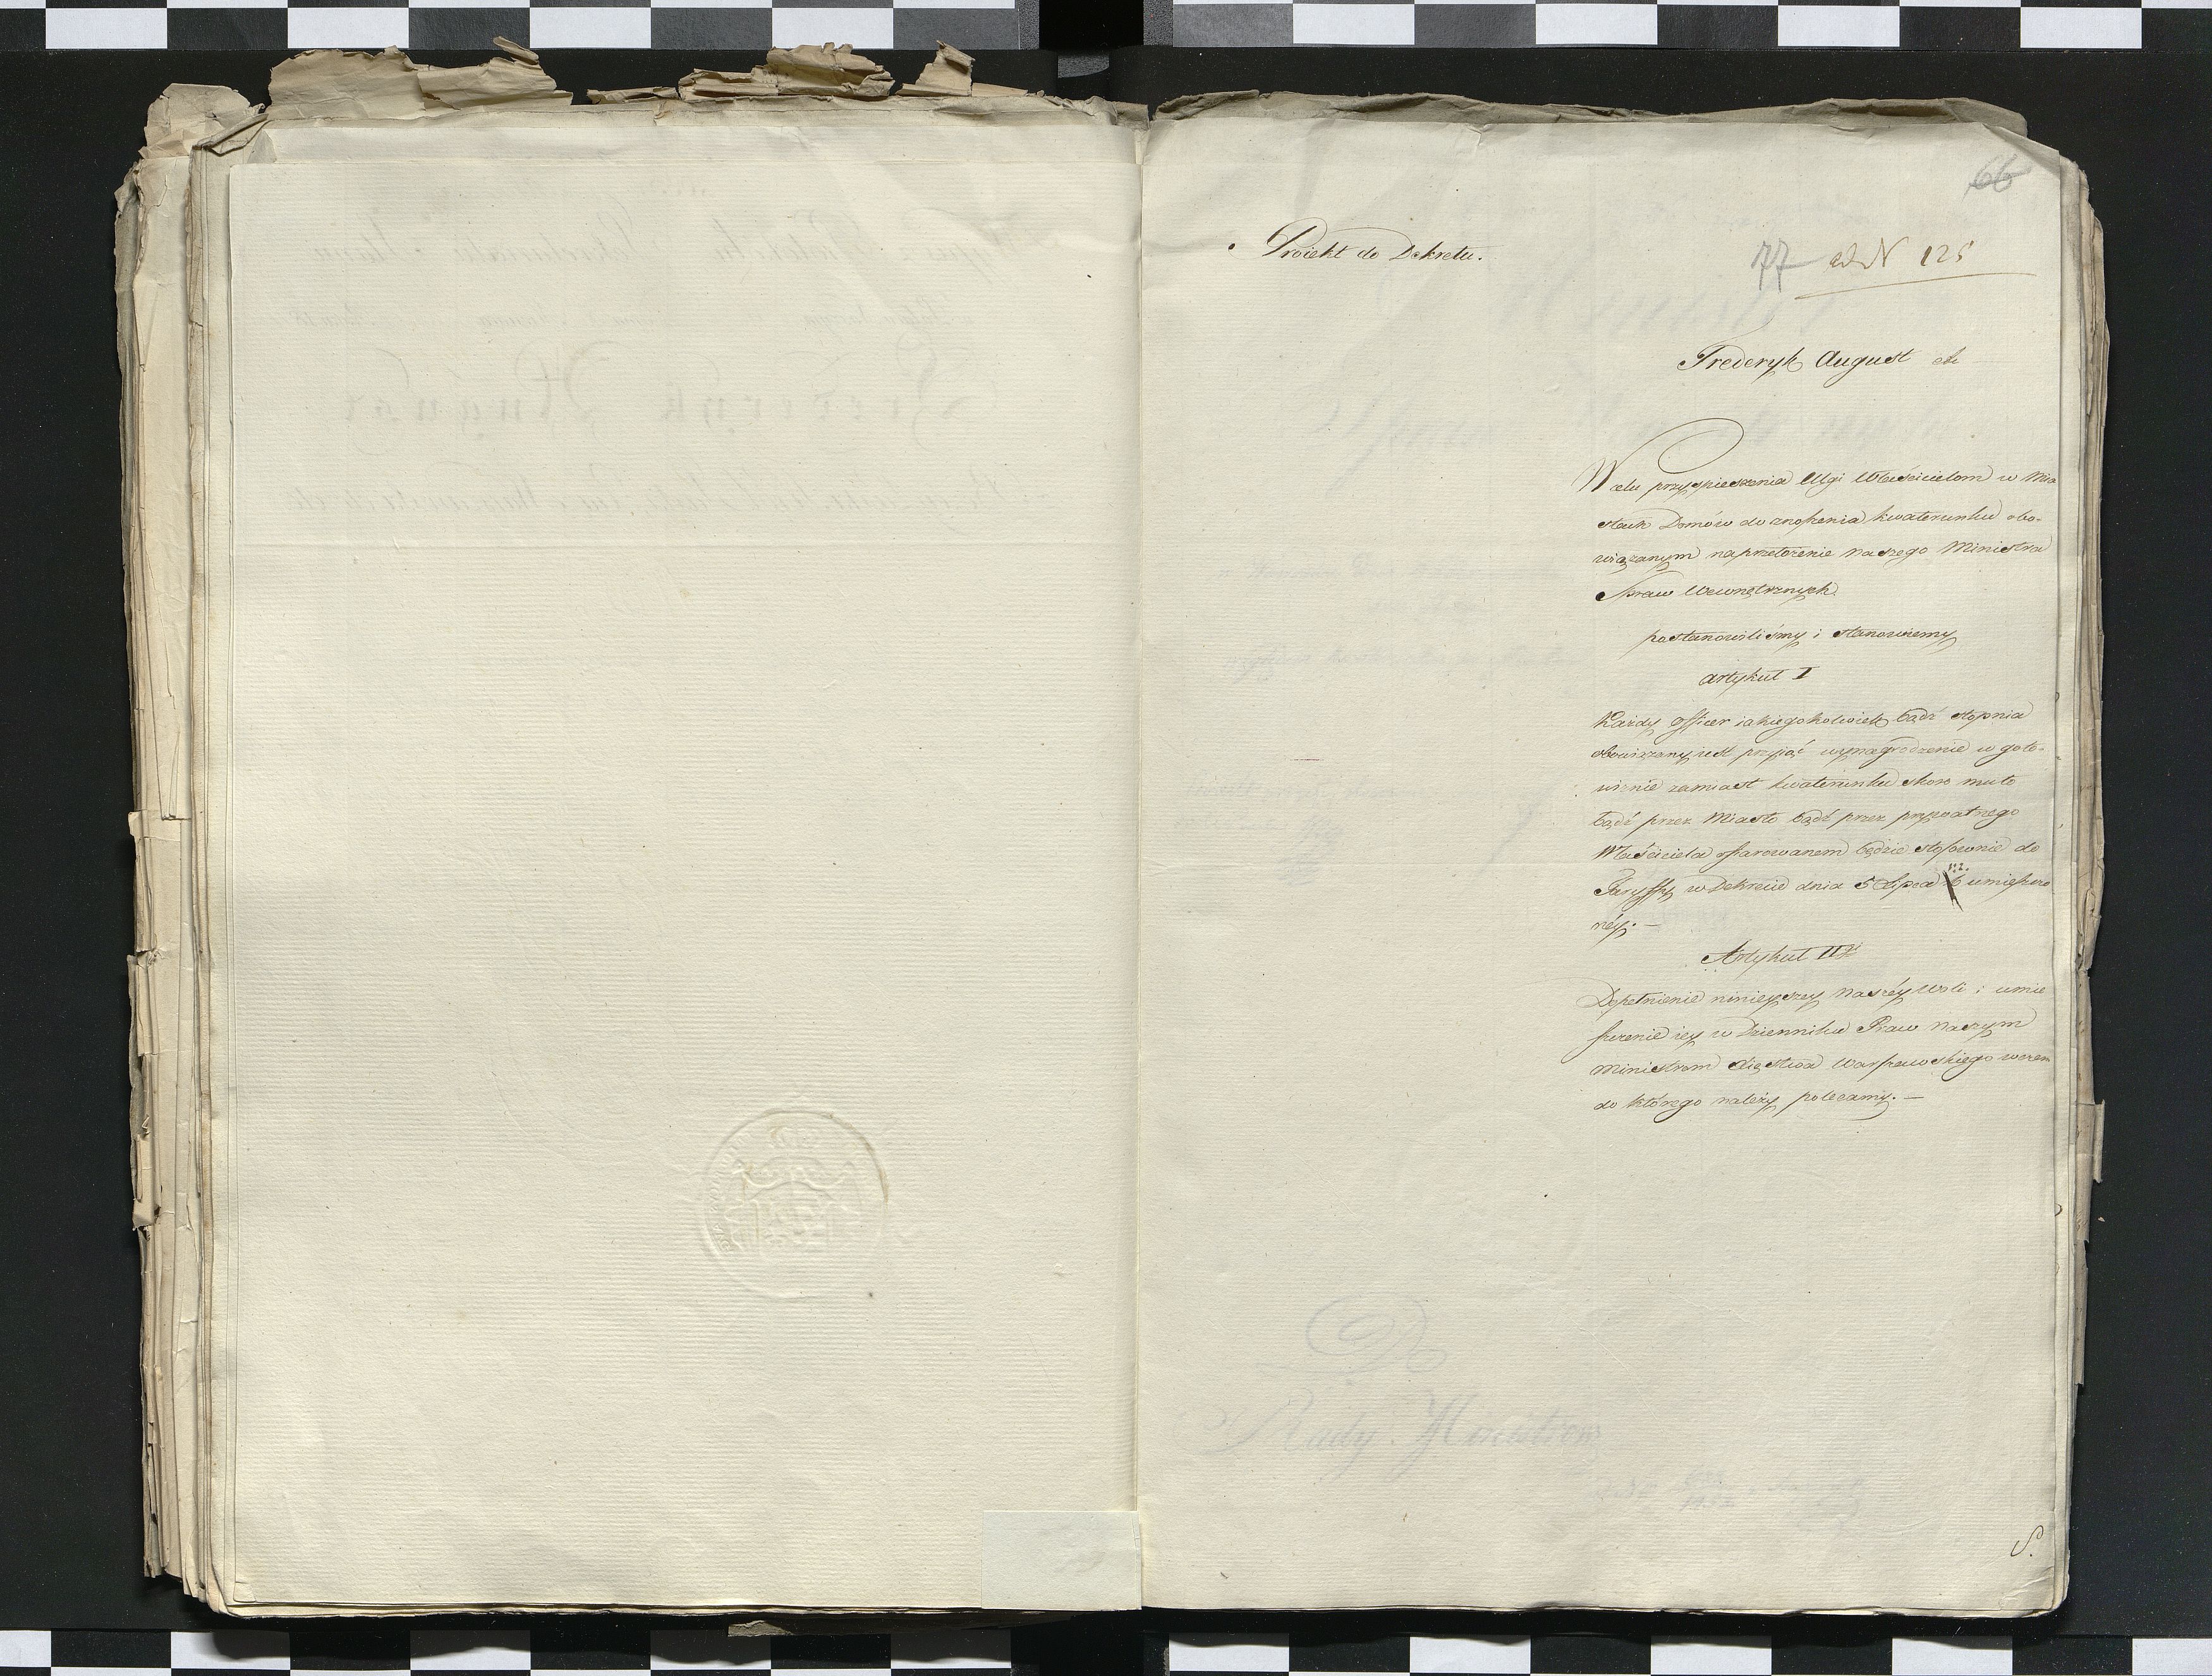 66
Proiekt do Dekretu.
77 ad N 125
Frederyk August etc
W celu przyspieszenia Ulgi Właścicielom w Mia
stach Domów do znoszenia kwaterunku obo-
wiązanym na przełożenie Naszego Ministra
Spraw Wewnętrznych
postanowiliśmy i stanowiemy
Artykuł I
Każdy officer iakiegokolwiek bądź stopnia
obowiązany iest przyiąć wynagrodzenie w goto-
wiznie zamiast kwaterunku skoro mu to
bądź przez Miasto bądź przez prywatnego
Właściciela ofiarowanem będzie stosownie do
Taryffy w Dekrecie dnia 5 Lipca umieszczo
néy. —
Artykuł II
Dopełnienie ninieyszey naszéy Woli i umie
szczenie iey w Dzienniku Praw naszym
Ministrom Xięstwa Warszawskiego w czem
do którego należy polecamy. —
Do
Rady Ministrow
S.